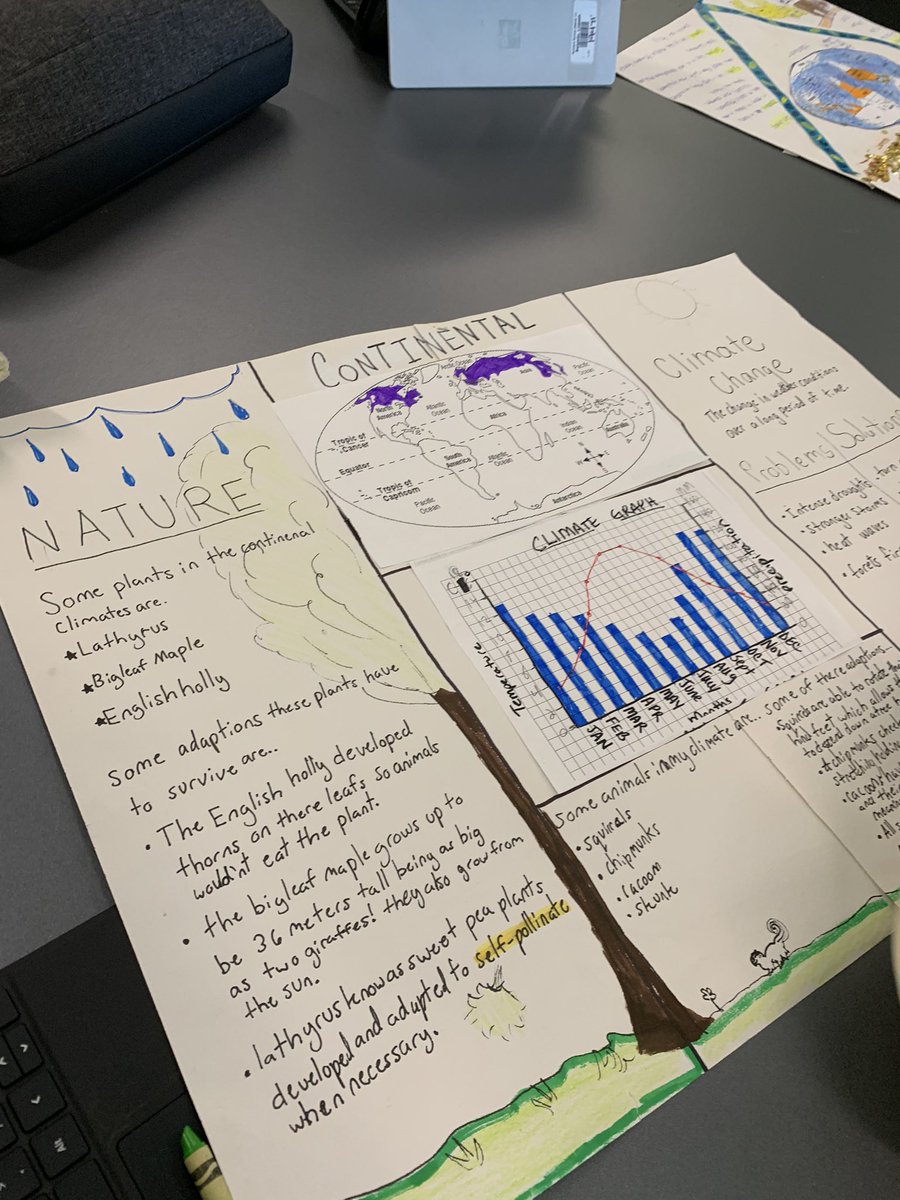 CONTINENTAL
NATURE
Some plants in the continenal
climates are.
Lathyrus
Bigleaf Maple
English holly
Some adaptions these plants have
to survive are..
• The English holly developed
thorns on there leafs so animals
wouldn't eat the plant.
• the bigleaf maple grows up to
be 36 meters tall being as big
as two giraffes! they also grow from
the sun.
• lathyrus know as sweet pea plants
developed and adapted to self-pollinate
when necessary.
Arctic Ocean
North America
Atlantic Ocean
Asia
Pacific Ocean
Africa
Tropic of Cancer
Equator
South America
Atlantic Ocean
Indian Ocean
Australia
Tropic of Capricorn
Pacific Ocean
Antarctica
N
W E
S
CLIMATE GRAPH
Temperature
precipitation
JAN
FEB
MAR
APR
MAY
JUNE
JULY
AUG
SEPT
OCT
NOV
DEC
months
Some animals in my climate are...
• squirals
• chipmunks
• racoom
• skunk
Climate
Change
The change in weather conditions
over a long period of time.
Problems/Solution
• Intense droughts
• stronger storms
• heat waves
• forets fir
Some of there adaptions
Squirals are able to rotate
hind feet which allows
to descend down a tree
• chipmunks cheek
• racoons
• All